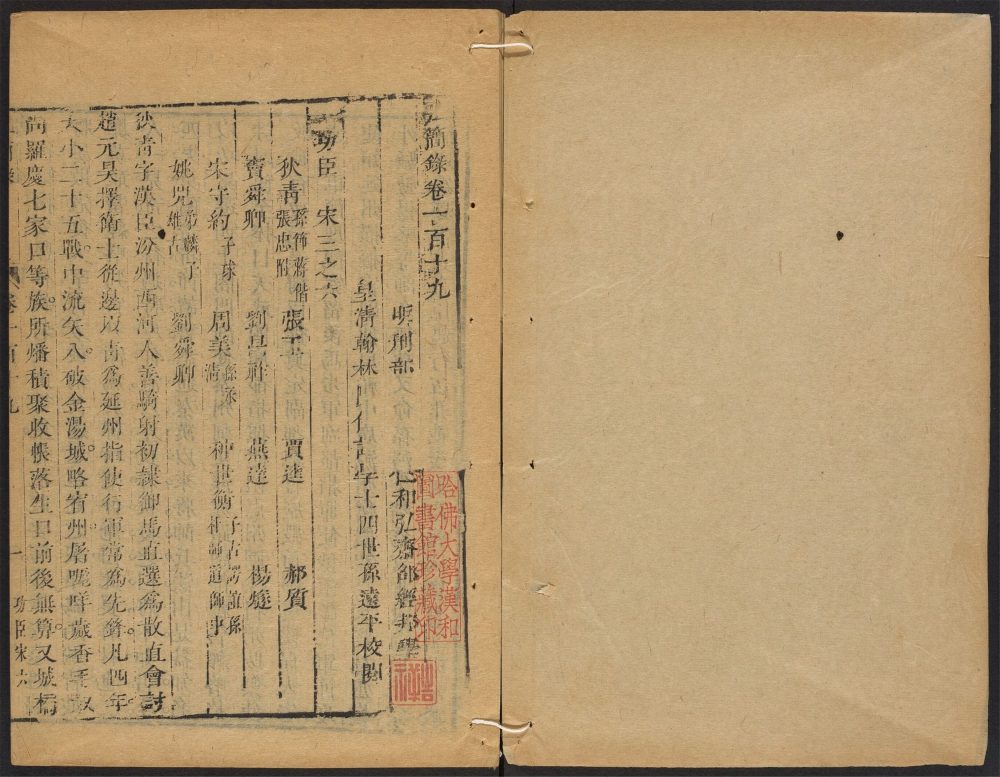 簡錄卷一百十九
明刑部
仁和弘齋邵經邦學
皇清翰林 侍讀學士四世孫遠平校閱
功臣 宋三之六
狄青 孫 蔣偕 張忠附 張玉 賈逵 郝質
竇舜卿 劉昌祚 燕達 楊燧
宋守約 子球 周美 种世衡 子古諤誼孫朴師道師中
姚兕 弟麟子雄古 劉舜卿
狄青字漢臣汾州西河人善騎射初隸御馬直選為散直會討
趙元昊擇衛士從邊以青為延州指使行軍常為先鋒凡四年
大小二十五戰中流矢八破金湯城略宥州屠 咩歲香
尚羅慶七家口等族所燔積聚收帳落生口前後無算又城橋
卷一百十九
一
功臣宋六
哈佛大學漢和
圖書館珍藏印